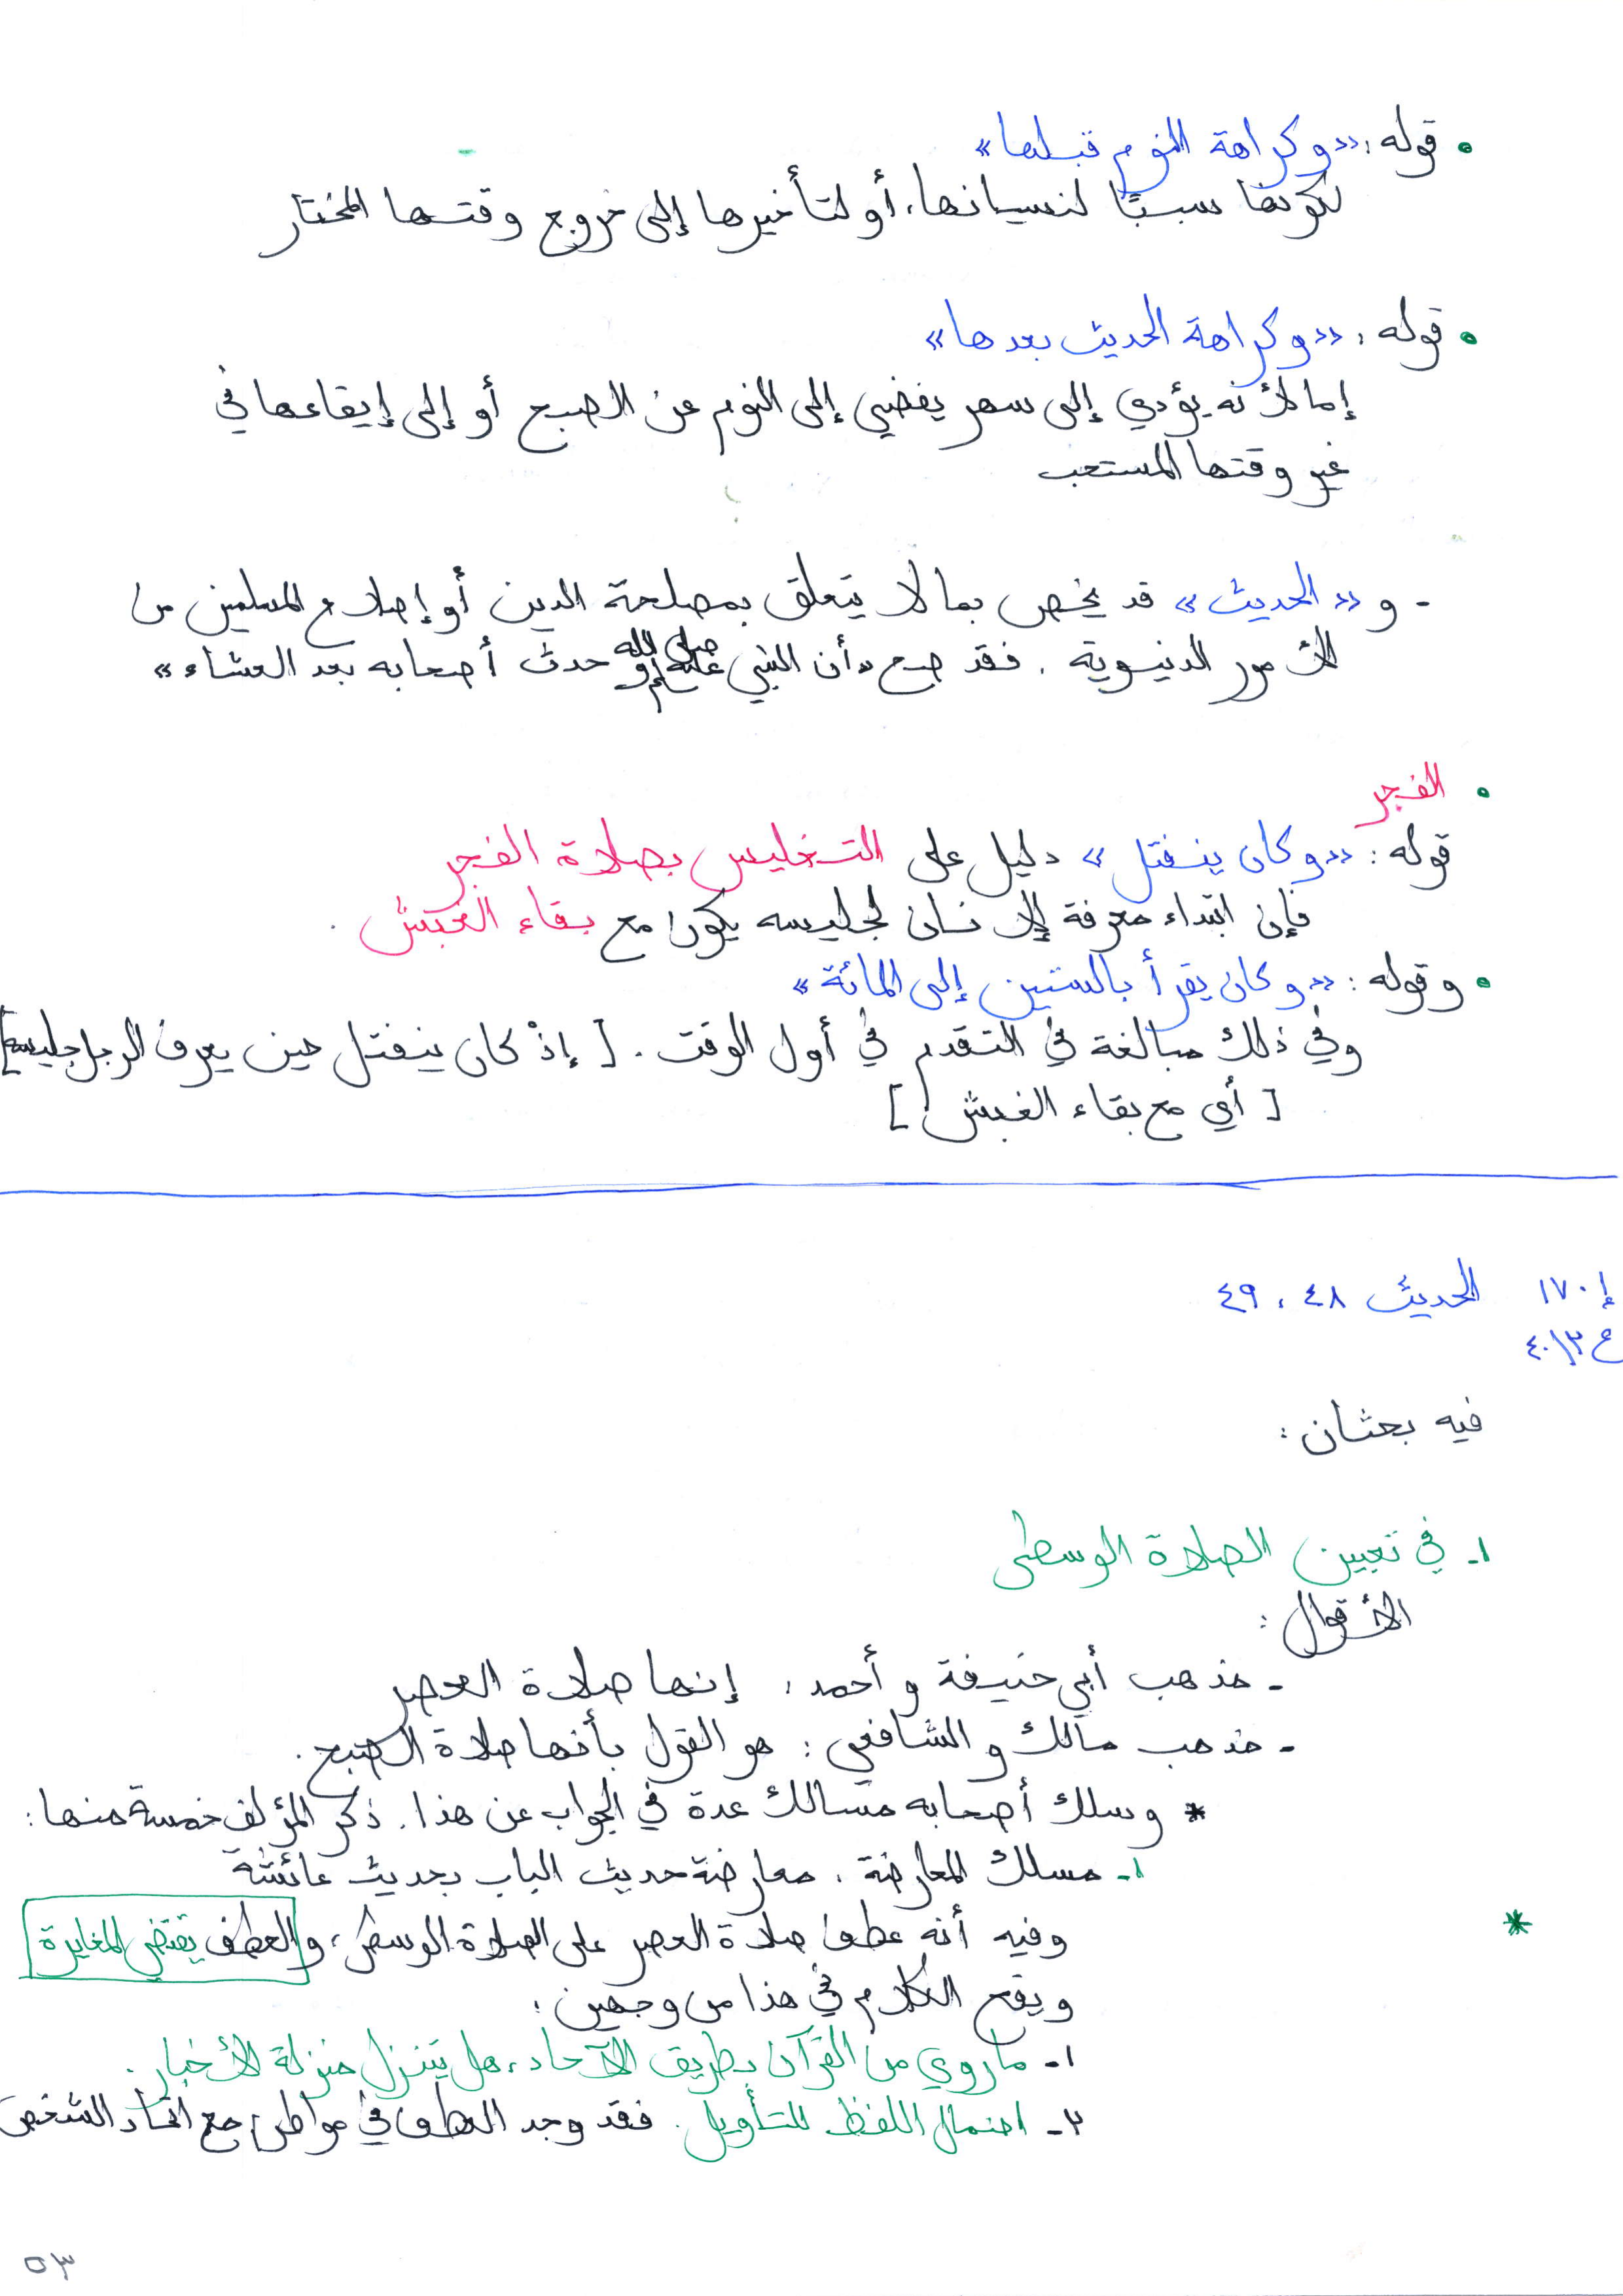 • قوله: «وكراهة النوم قبلها»
لكونها سببًا لنسيانها، أو لتأخيرها إلى خروج وقتها المختار
• قوله: «وكراهة الحديث بعدها»
إما لأنه يؤدي إلى سهر يفضي إلى النوم عن الصبح أو إلى إيقاعها في
غير وقتها المستحب
- و «الحديث» قد يخص بما لا يتعلق بمصلحة الدين أو إصلاح المسلمين من
الأمور الدنيوية. فقد صح «أن النبي صلى الله عليه وسلم حدث أصحابه بعد العشاء»
• الفجر
قوله: «وكان ينفتل» دليل على التغليس بصلاة الفجر
فإن ابتداء معرفة الإنسان لجليسه يكون مع بقاء الغبش.
• وقوله: «وكان يقرأ بالستين إلى المائة»
وفي ذلك مبالغة في التقدم في أول الوقت. [إذْ كان ينفتل حين يعرف الرجل جليسه]
[أي مع بقاء الغبش!]
إ ١٧٠ الحديث ٤٨، ٤٩
ع ٢/ ٤٠
فيه بحثان:
١- في تعيين الصلاة الوسطى
الأقوال:
- مذهب أبي حنيفة وأحمد: إنها صلاة العصر
- مذهب مالك والشافعي: هو القول بأنها صلاة الصبح.
* وسلك أصحابه مسالك عدة في الجواب عن هذا. ذكر المؤلف خمسة منها:
١- مسلك المعارضة: معارضة حديث الباب بحديث عائشة
* وفيه أنه عطف صلاة العصر على الصلاة الوسطى، والعطف يقتضي المغايرة
ويقع الكلام في هذا من وجهين:
١- ما روي من القرآن بطريق الآحاد، هل يتنزل منزلة الأخبار.
٢- احتمال اللفظ للتأويل. فقد وجد العطف في مواطن مع اتحاد الشخص
٥٣